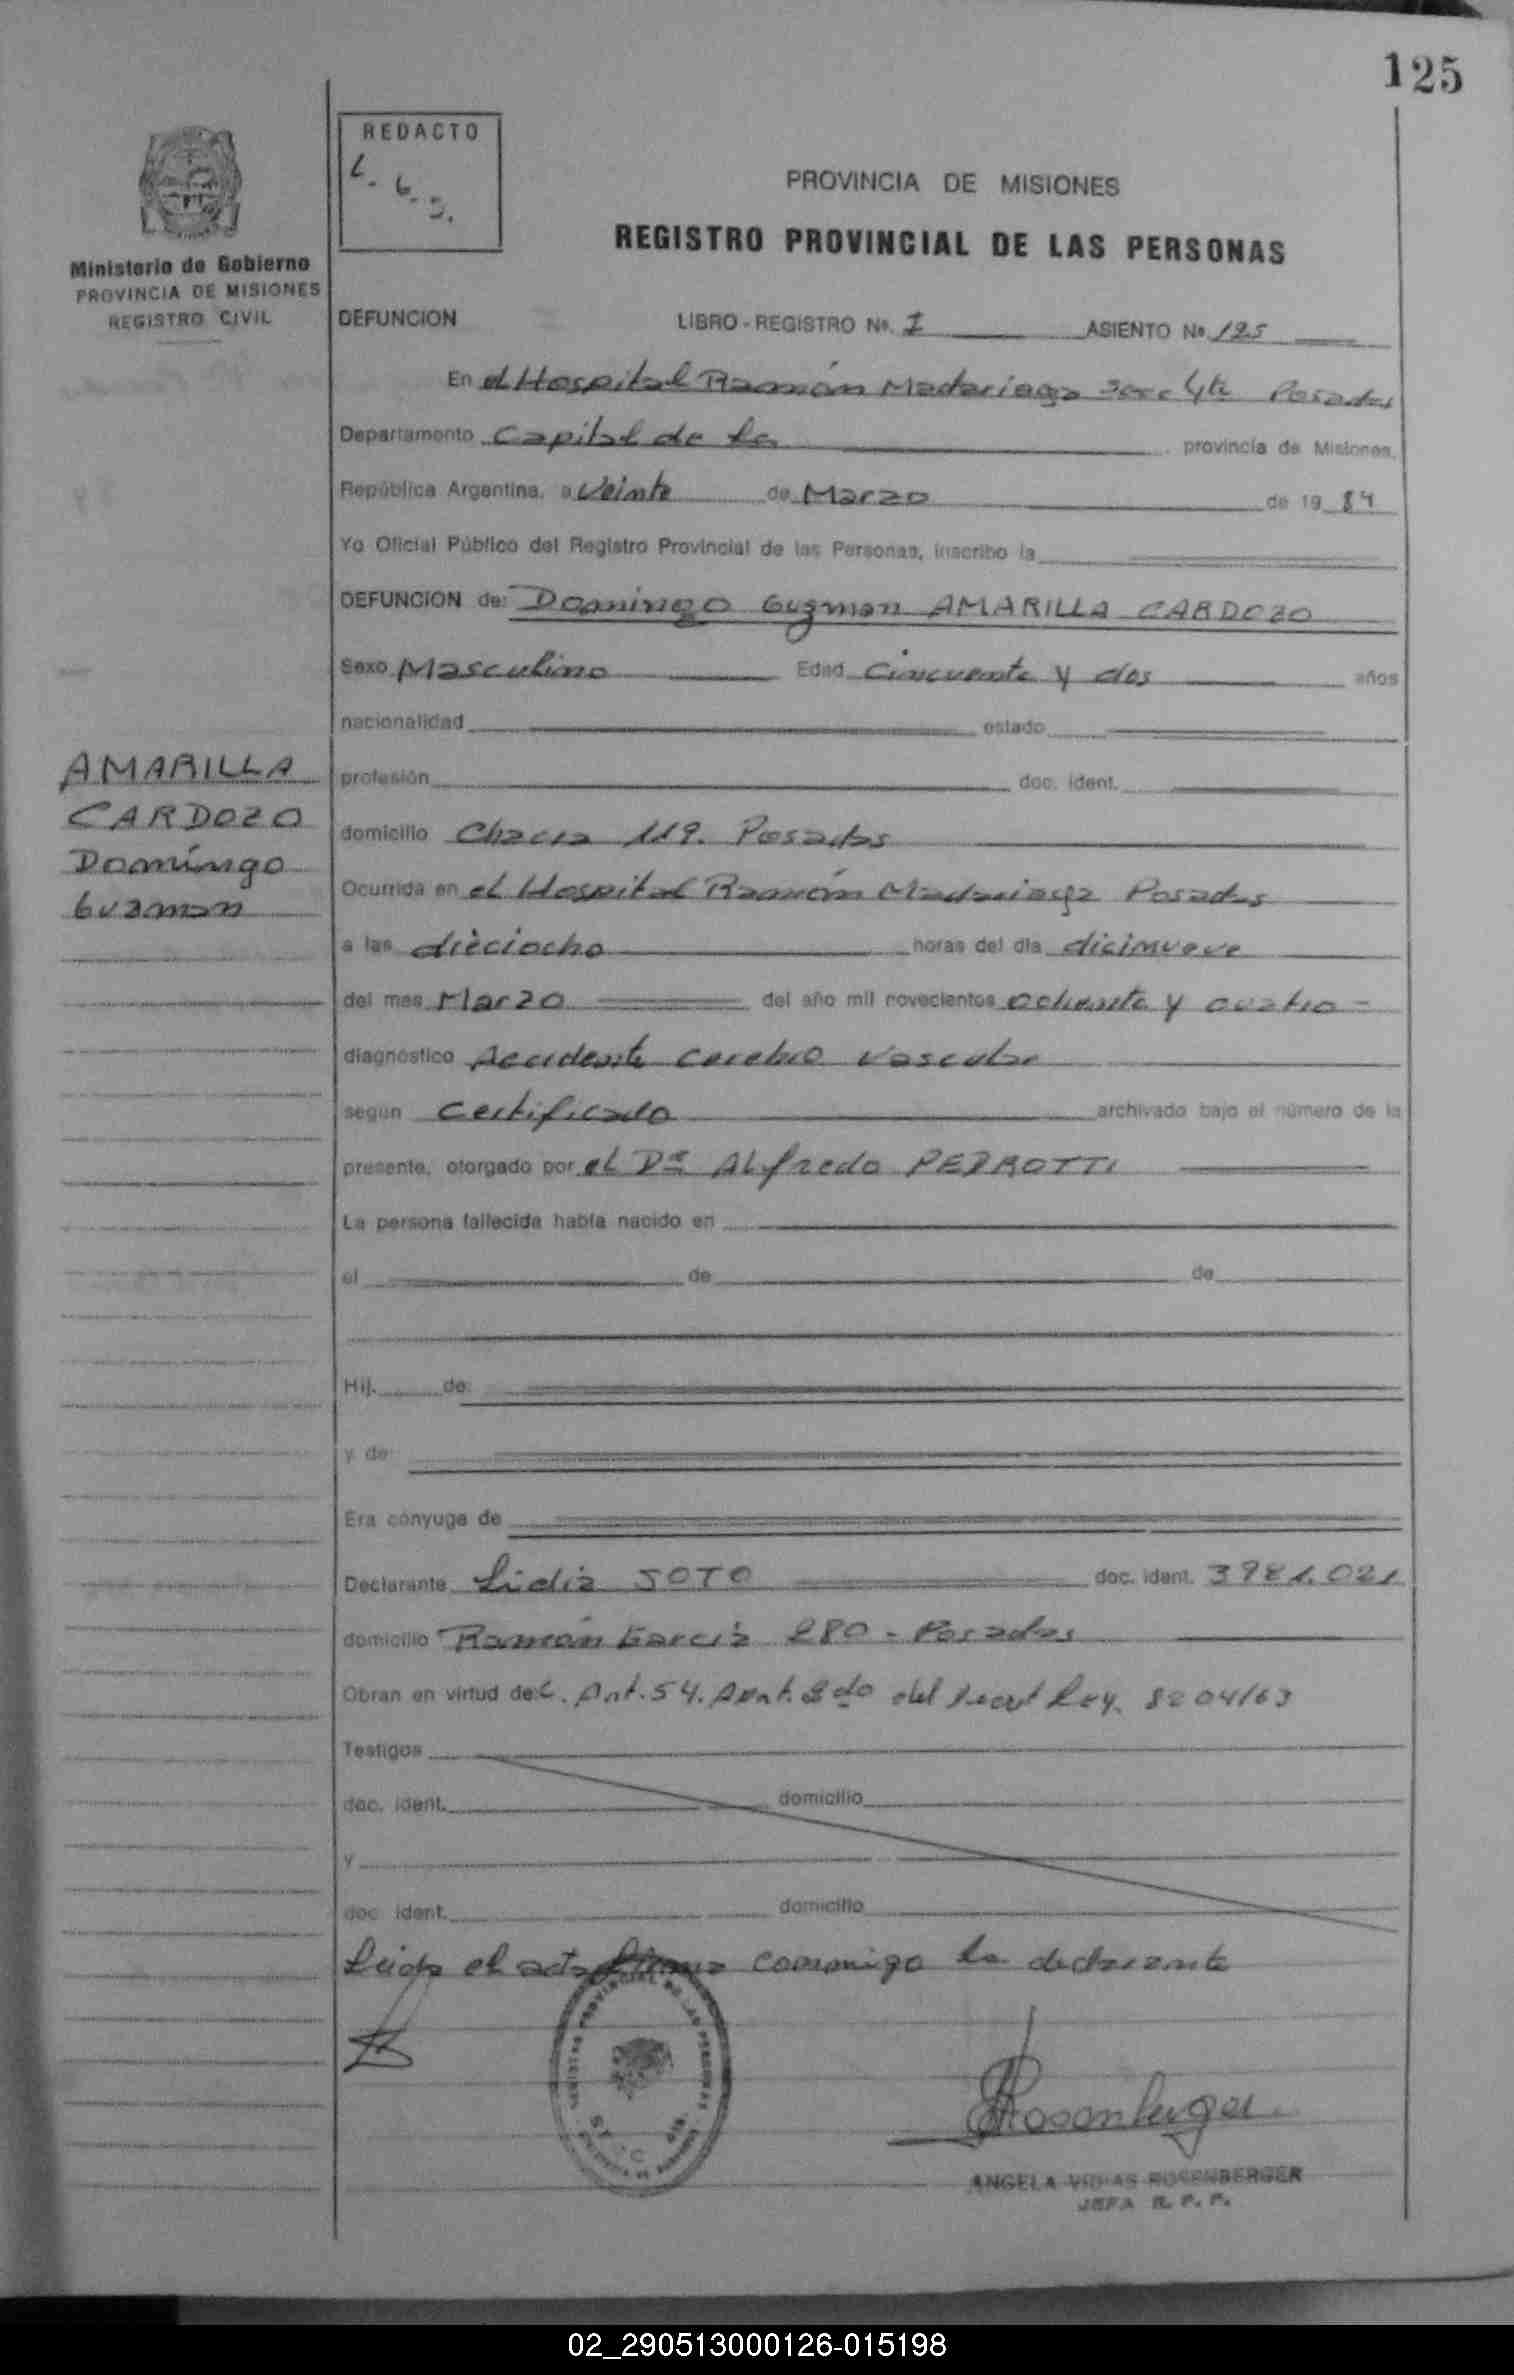 125
REDACTO
L. G. S.
Ministerio de Gobierno
PROVINCIA DE MISIONES
REGISTRO CIVIL
PROVINCIA DE MISIONES
REGISTRO PROVINCIAL DE LAS PERSONAS
DEFUNCION LIBRO - REGISTRO No. I ASIENTO No. 125
En el Hospital Ramón Madariaga Posadas
Departamento Capital de la provincia de Misiones,
República Argentina, a Veinte de Marzo de 19 84
Yo Oficial Público del Registro Provincial de las Personas, inscribo la
DEFUNCION de: Domingo Guzman AMARILLA CARDOZO
Sexo Masculino Edad Cincuenta y dos años
nacionalidad estado
AMARILLA
CARDOZO
Domingo
Guzman
profesión doc. ident.
domicilio Chacra 119. Posadas
Ocurrida en el Hospital Ramón Madariaga Posadas
a las dieciocho horas del día dicinueve
del mes Marzo del año mil novecientos ochenta y cuatro -
diagnóstico Accidente cerebro vascular
según Certificado archivado bajo el número de la
presente, otorgado por el Dr Alfredo PEDROTTI
La persona fallecida había nacido en
el de de
Hij. de:
y de:
Era cónyuge de
Declarante Lidia SOTO doc. ident. 3981.021
domicilio Ramón García 280 - Posadas
Obran en virtud de: Art. 54. Apart. 2do del Decret Ley. 8204/63
Testigos
doc. ident. domicilio
y
doc. ident. domicilio
Leida el acta firma conmigo la declarante
REGISTRO PROVINCIAL DE LAS PERSONAS
Rosenberger
ANGELA VIDVAS ROSENBERGER
JEFA R. P. P.
02_290513000126-015198